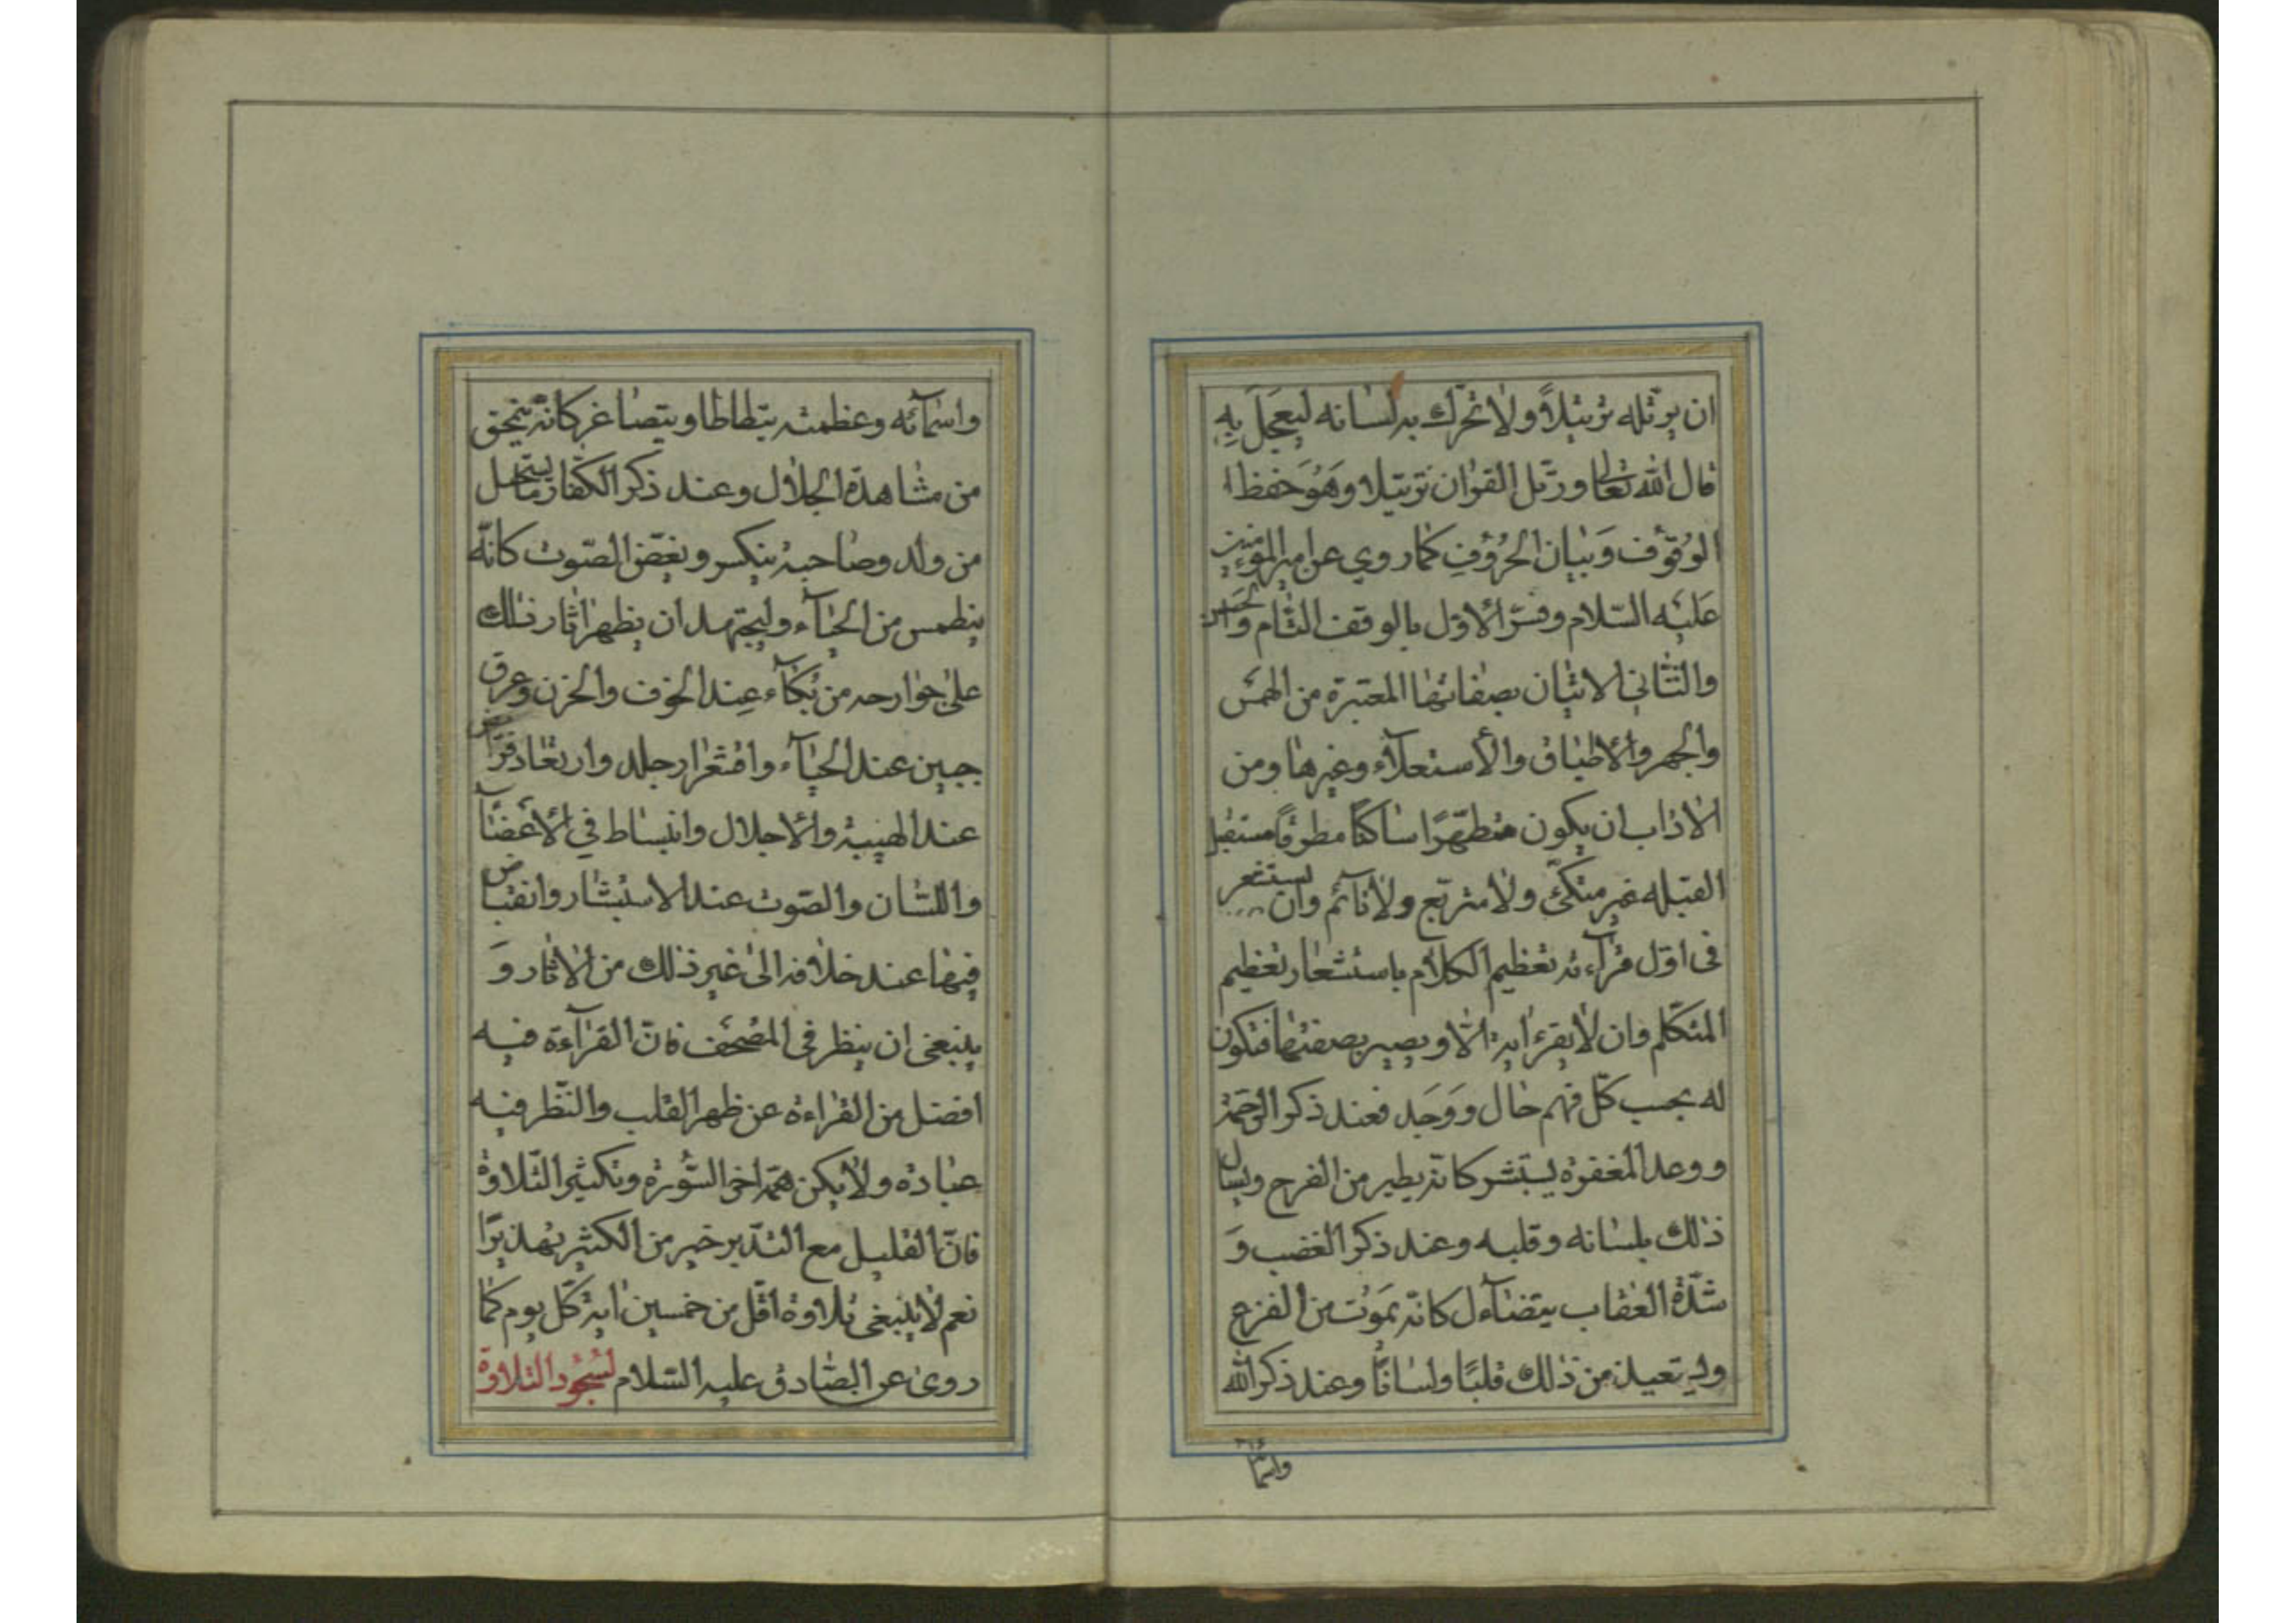 ان يرتّله ترتيلاً ولا تحرّك به لسانه ليعجل به
قال الله تعالى ورتّل القران ترتيلا وهو حفظ
الوقوف وبيان الحروف كما روي عن امير المؤمنين
عليه السّلام وفسّر الاوّل بالوقف التّام والحسن
والثّاني الاتيان بصفاتها المعتبرة من الهمس
والجهر والاطباق والأستعلاء وغيرها ومن
الاداب ان يكون متطهّرًا ساكنًا مطرقًا مستقبل
القبله غير متكّئ ولا متربّع ولا نآئم وان يستشعر
فى اوّل قرآءته تعظيم الكلام باستشعار تعظيم
المتكلّم وان لا يقرء اية الّا ويصير بصفتها فتكون
له بحسب كلّ فهم حال ووجد فعند ذكر الرّحمة
ووعد المغفرة يستبشر كانّه يطير من الفرح ويسال
ذلك بلسانه وقلبه وعند ذكر الغضب و
شدّة العقاب يتضآءل كانّه يموت من الفزع
ويستعيذ من ذلك قلبًا ولسانًا وعند ذكر الله
واسما
واسمآئه وعظمته يتطاطا ويتصاغر كانّه ينمحق
من مشاهدة الجلال وعند ذكر الكفّار ما يستحيل
من ولد وصاحبة ينكس ويغضّ الصّوت كانّه
ينطمس من الحيآء وليجتهد ان يظهر اثار ذلك
على جوارحه من بكآء عند الخوف والحزن وعرق
جبين عند الحيآء واقشعرار جلد وارتعاد فرائص
عند الهيبة والاجلال وانبساط في الاعضآ
واللسان والصّوت عند الاستبشار وانقباض
فيها عند خلافه الى غير ذلك من الاثار و
ينبغى ان ينظر فى المصحف فانّ القرآءة فيه
افضل من القراءة عن ظهر القلب والنّظر فيه
عبادة ولا يكن همّه اخر السّورة وتكثير التّلاوة
فانّ القليل مع التدّبر خير من الكثير يهذّ هذّا
نعم لا ينبغى تلاوة اقّل من خمسين اية كلّ يوم كما
روى عن الصّادق عليه السّلام لسجود التلاوة